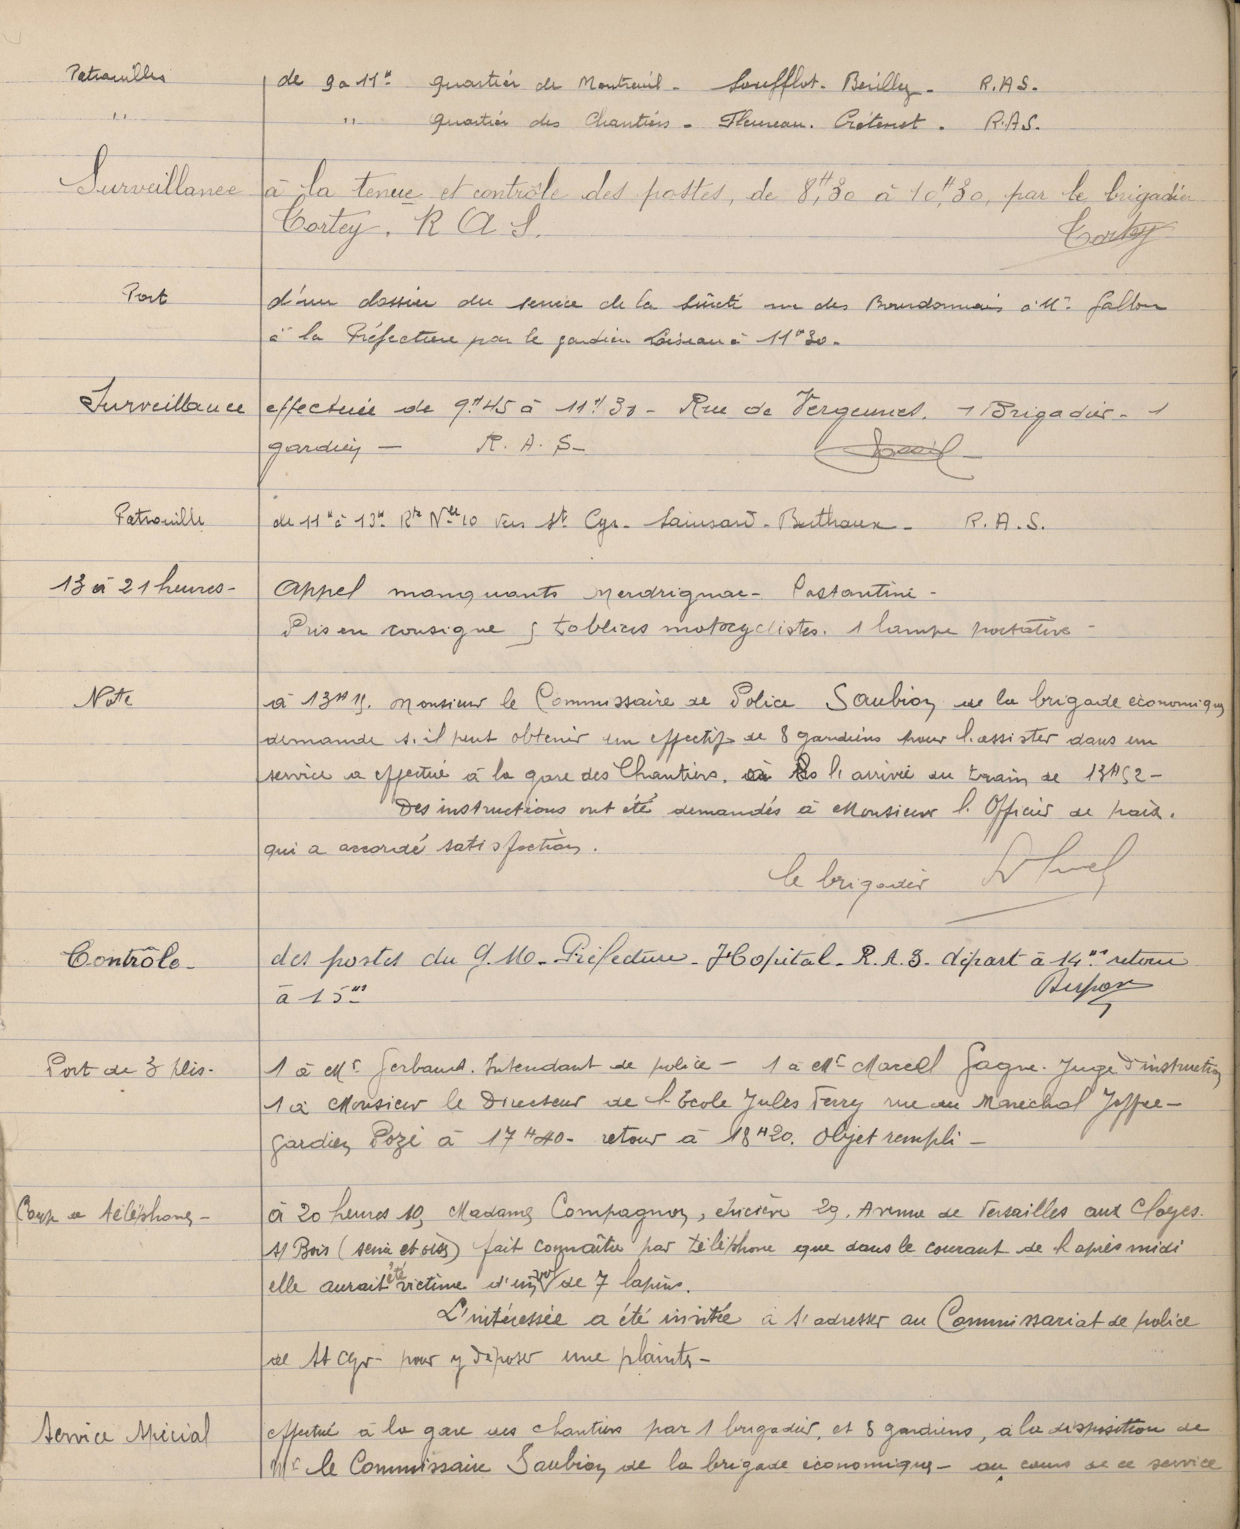 Patrouilles de 9 à 11H quartier de Montreuil - Soufflot - Beilley - R.A.S.
" " quartier des Chantiers - Fleureau. Crétenet. R.A.S.
Surveillance à la tenue et contrôle des postes, de 8H30 à 10H30, par le brigadier
Tortey. R A S. Tortey
Port d'un dossier du service de la Sûreté rue des Bourdonnais à Mr Gallon
à la Préfecture par le gardien Loiseau à 11H30.
Surveillance effectuée de 9H45 à 11H30 - Rue de Vergennes. 1 Brigadier - 1
gardien — R. A. S-
Patrouille de 11H à 13H Rte Nle 10 vers St Cyr. Sainsard - Berthaux - R.A.S.
13 à 21 heures - Appel manquants Merdrignac - Costantini -
Pris en consigne 5 tabliers motocyclistes. 1 lampe portative -
Note à 13H15. Monsieur le Commissaire de Police Saubion de la brigade économique
demande s'il peut obtenir un effectif de 8 gardiens pour l'assister dans un
service a effectué à la gare des Chantiers. à l'arrivée du train de 13H52 -
Des instructions ont été demandés à Monsieur l'Officier de paix.
qui a accordé satisfaction.
le brigadier
Contrôle - des postes du G.M.O - Préfecture - Hopital - R.A.S. départ à 14H retour
à 15H
Port de 3 plis - 1 à Mr Gerbaud. Intendant de police - 1 à Mr Marcel Gagne. Juge d'instruction
1 à Monsieur le Directeur de l'Ecole Jules Ferry rue du Maréchal Joffre -
gardien Pozi à 17H40 - retour à 18H20. Objet rempli -
Coup de téléphone - à 20 heures 10, Madame Compagnon, épicière 29. Avenue de Versailles aux Clayes.
s/ Bois (seine et oise) fait connaître par téléphone que dans le courant de l'après midi
elle aurait été victime d'un vol de 7 lapins.
L'intéressée a été invitée à s'adresser au Commissariat de police
de St Cyr - pour y déposer une plainte -
Service Spécial effectué à la gare des chantiers par 1 brigadier, et 8 gardiens, à la disposition de
Mr le Commissaire Saubion de la brigade économique - au cours de ce service